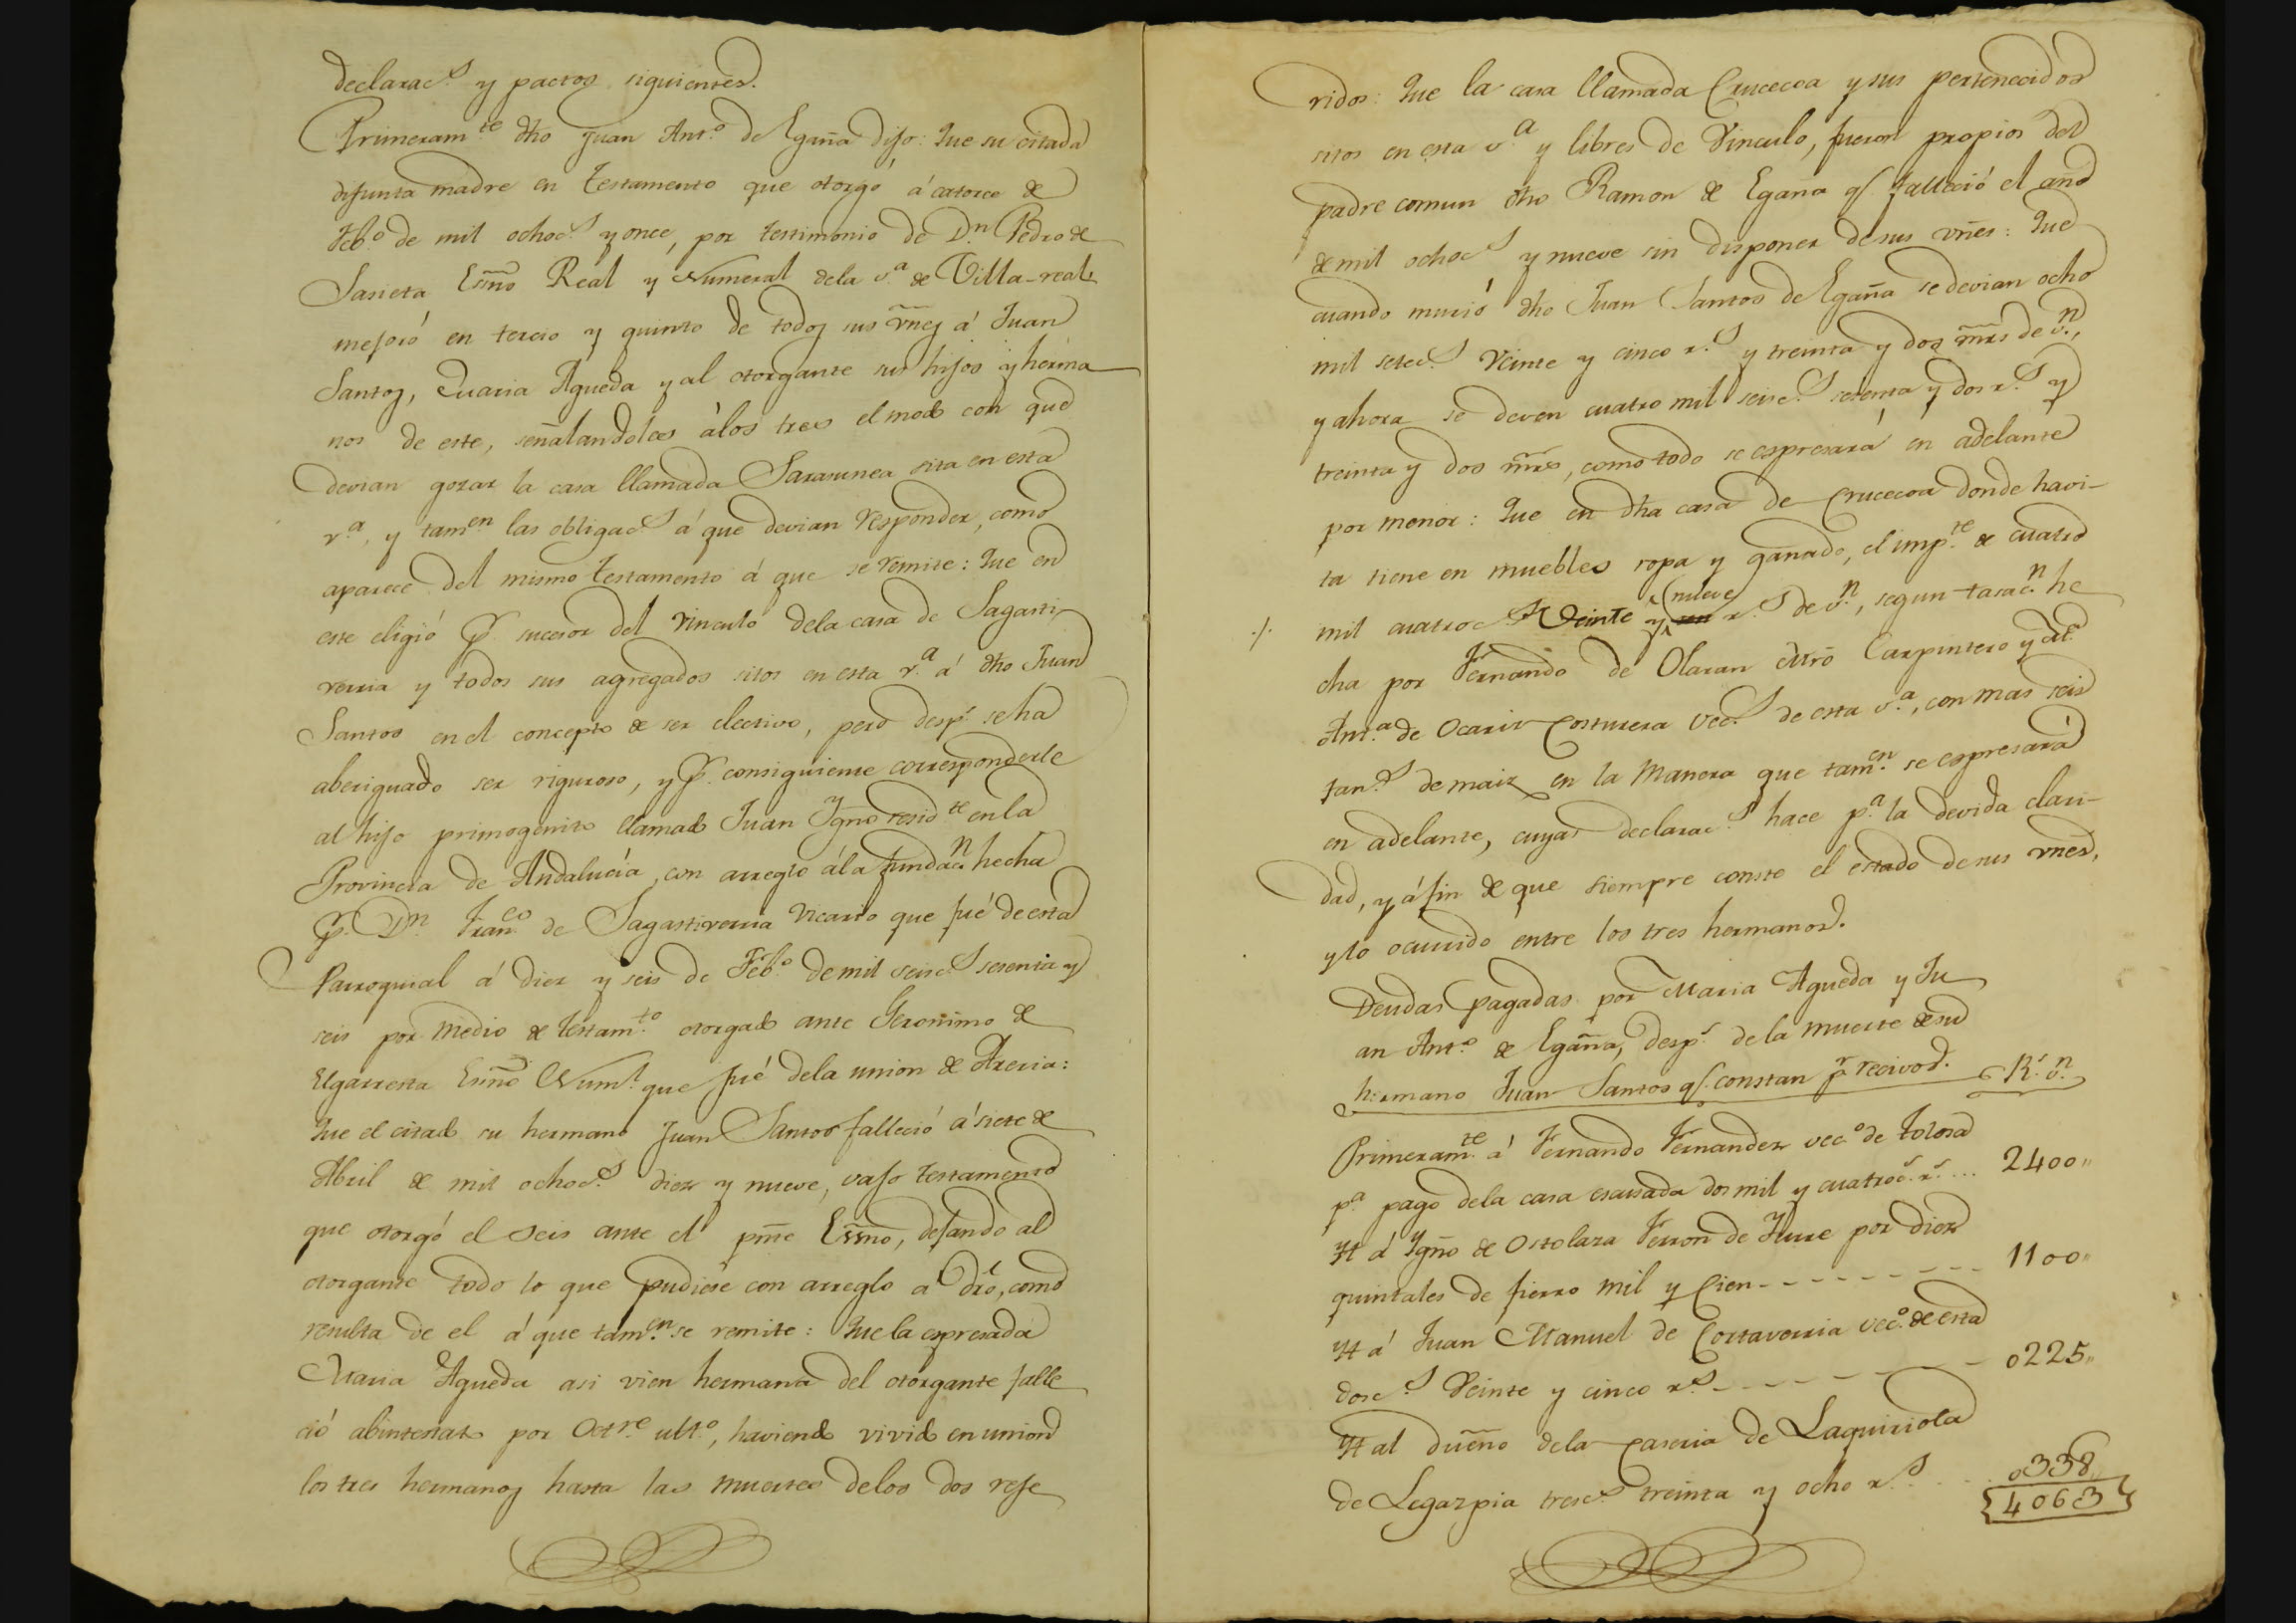 declarac.s y pactos siguientes.
Primeram.te dho Juan Ant.o de Egaña dijo: Que su citada
difunta madre en testamento que otorgó á catorce de
Feb.o de mil ochoc.s y once, por testimonio de D.n Pedro de
Sasieta Esn̄o Real y Numeral dela v.a de Villa-real,
mejoró en tercio y quinto de todos sus vn̄es á Juan
Santos, Maria Agueda y al otorgante sus hijos y herma
nos de este, señalandoles álos tres el modo con que
devian gozar la casa llamada Sarasunea sita en esta
v.a, y tam.en las obligac.s á que devian responder, como
aparece del mismo testamento á que se remite: Que en
este eligió p.r sucesor del vinculo dela casa de Sagasti
verria y todos sus agregados sitos en esta v.a á dho Juan
Santos en el concepto de ser electivo, pero desp.s se ha
aberiguado ser riguroso, y p.r consiguiente corresponderle
al hijo primogenito llamado Juan Ygn̄o resid.te en la
Provincia de Andalucía, con arreglo ála fundac.n hecha
p.r D.n Fran.co de Sagastiverria Vicario que fué de esta
Parroquial á diez y seis de Feb.o de mil seisc.s setenta y
seis por medio de testam.to otorgado ante Geronimo de
Elgarresta Esn̄o Num.l que fué dela union de Areria:
Que el citado su hermano Juan Santos falleció á siete de
Abril de mil ochoc.s diez y nueve, vajo testamento
que otorgó el seis ante el pn̄te Esn̄o, dejando al
otorgante todo lo que pudiese con arreglo a dr̄o, como
resulta de el á que tam.en se remite: Que la espresada
Maria Agueda asi vien hermana del otorgante falle
ció abintestato por Oct.re ult.o, haviendo vivido en union
los tres hermanos hasta las muertes delos dos refe
ridos: Que la casa llamada Crucecoa y sus pertenecidos
sitos en esta v.a y libres de Vinculo, fueron propios del
padre comun dho Ramon de Egaña q.e falleció el año
de mil ochoc.s y nueve sin disponer de sus vn̄es: Que
cuando murió dho Juan Santos de Egaña se devian ocho
mil setec.s veinte y cinco r.s y treinta y dos mr̄s de v.n,
y ahora se deven cuatro mil seisc.s sesenta y dos r.s y
treinta y dos mr̄s, como todo se espresará en adelante
por menor: Que en dha casa de Crucecoa donde havi-
ta tiene en muebles ropa y ganado, el imp.te de cuatro
./. mil cuatroc.s veinte y nueve r.s de v.n, segun tasac.n he
cha por Fernando de Olaran Mr̄o Carpintero y M.a
Ant.a de Ocariz Costurera vec.s de esta v.a, con mas seis
fan.s de maiz en la manera que tam.en se espresará
en adelante, cuyas declarac.s hace p.a la devida clari-
dad, y á fin de que siempre conste el estado de sus vn̄es,
y lo ocurrido entre los tres hermanos.
Deudas pagadas por Maria Agueda y Ju
an Ant.o de Egaña, desp.s de la muerte de su
hermano Juan Santos q.e constan p.r recivos. R.s v.n
Primeram.te á Fernando Fernandez vec.o de Tolosa
p.a pago dela casa escusada dos mil y cuatroc.s r.s ... 2400,,
Yt á Ygn̄o de Ostolaza Ferron de Yurre por diez
quintales de fierro mil y cien - - - - - - - - - 1100,,
Yt á Juan Manuel de Cortaverria vec.o de esta
dosc.s veinte y cinco r.s - - - - - - - 0225,,
Yt al dueño dela caseria de Laquiriola
de Legazpia tresc.s treinta y ocho r.s . . . 0338,,
4063